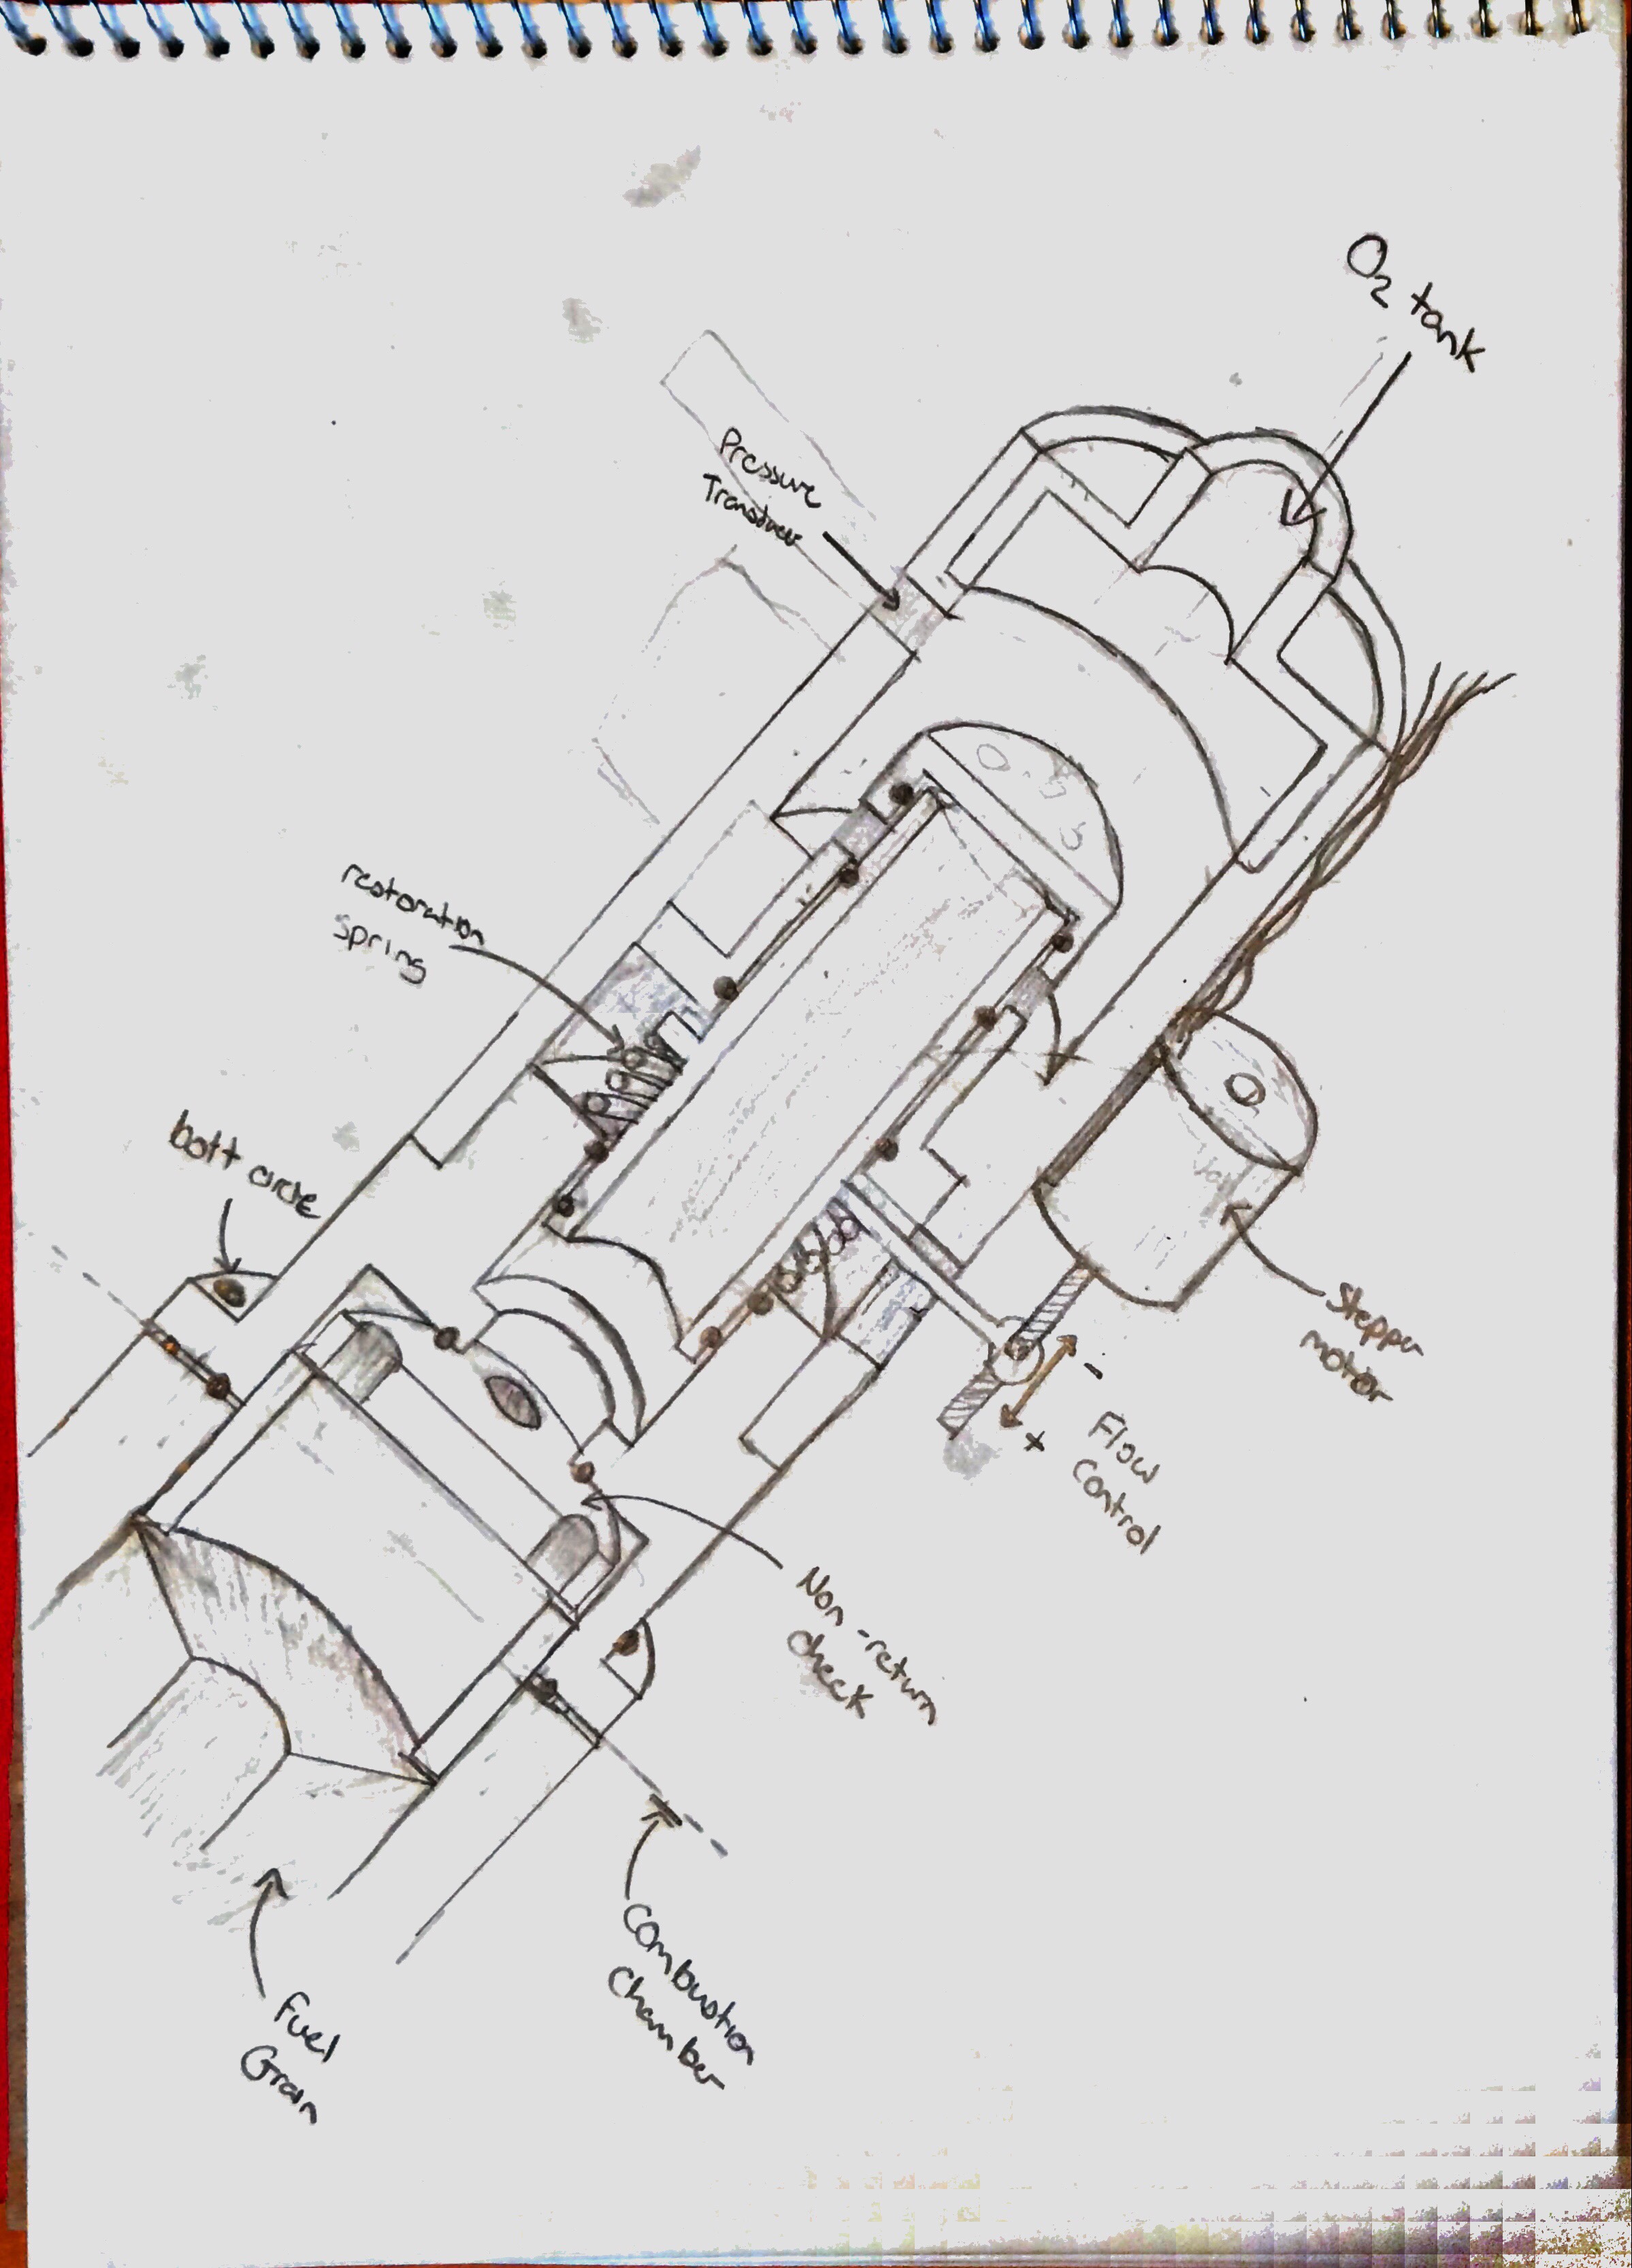 O2 tank
Pressure
restoration
spring
bolt circle
Stepper
motor
- +
Flow
Control
Non-return
check
Combustion
Chamber
Fuel
Grain